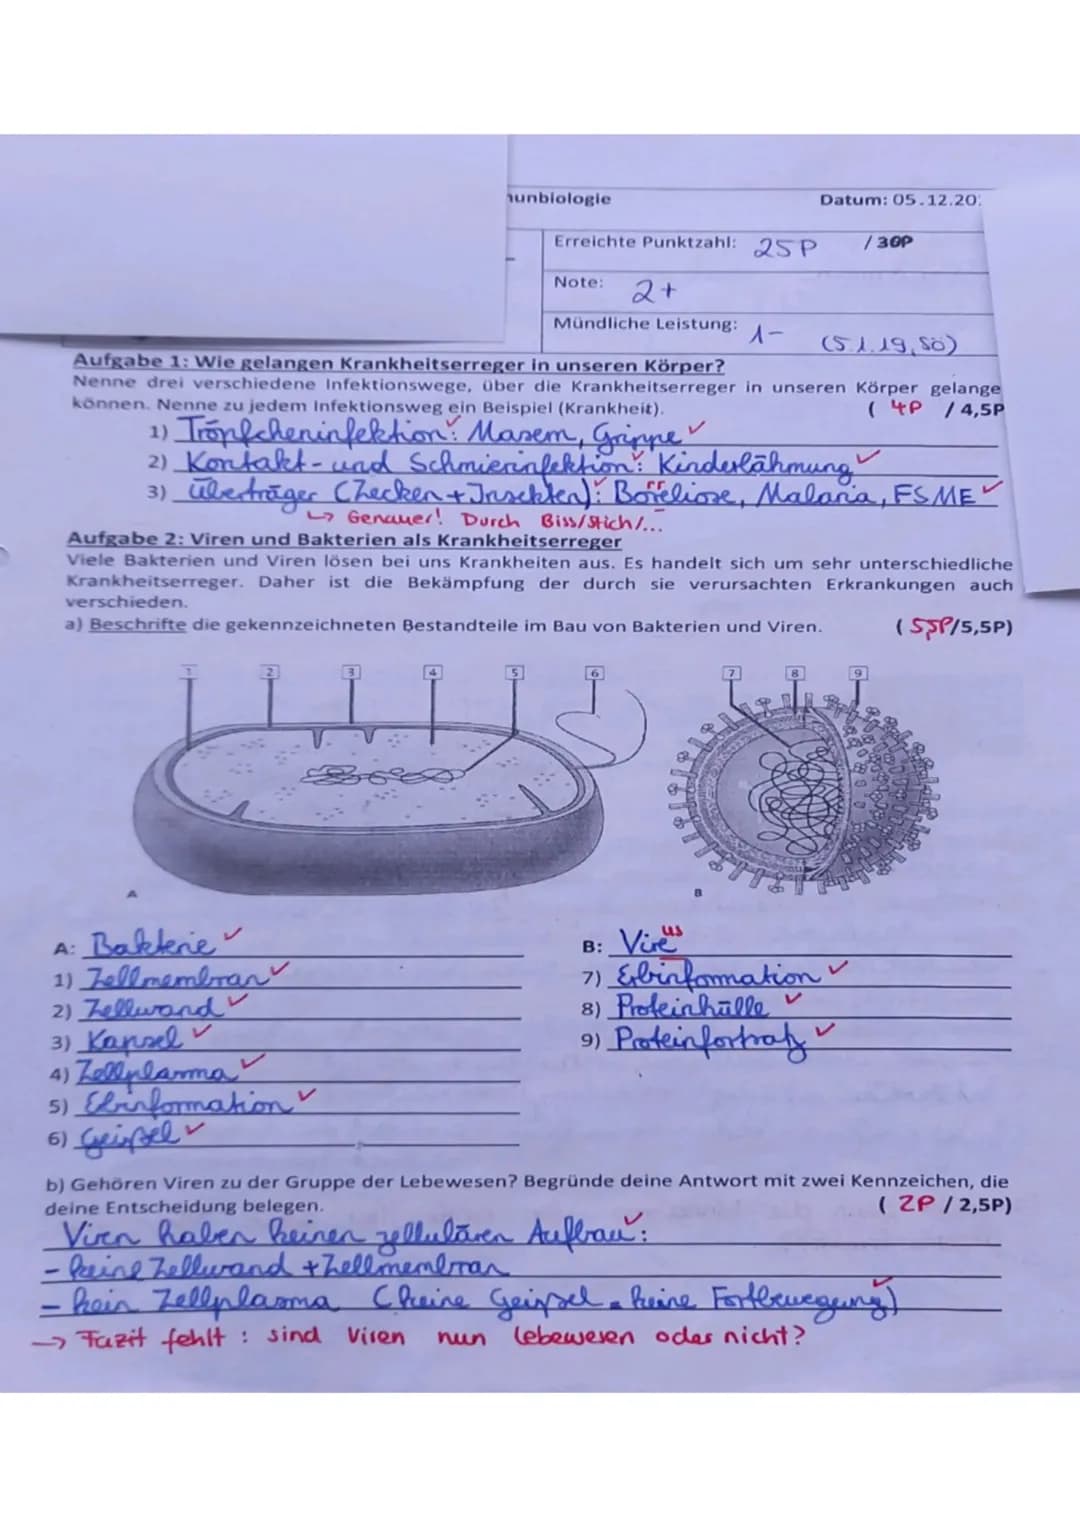 unbiologie Datum: 05.12.20
Erreichte Punktzahl: 25P /30P
Note: 2+
Mündliche Leistung: 1- (5.1.19, Sö)
Aufgabe 1: Wie gelangen Krankheitserreger in unseren Körper?
Nenne drei verschiedene Infektionswege, über die Krankheitserreger in unseren Körper gelange
können. Nenne zu jedem Infektionsweg ein Beispiel (Krankheit). ( 4P / 4,5P
1) Tröpfcheninfektion: Masern, Grippe ✓
2) Kontakt- und Schmierinfektion: Kinderlähmung ✓
3) Überträger (Zecken + Insekten): Boreliose, Malaria, FSME ✓
rr
↳ Genauer! Durch Biss/Stich/...
Aufgabe 2: Viren und Bakterien als Krankheitserreger
Viele Bakterien und Viren lösen bei uns Krankheiten aus. Es handelt sich um sehr unterschiedliche
Krankheitserreger. Daher ist die Bekämpfung der durch sie verursachten Erkrankungen auch
verschieden.
a) Beschrifte die gekennzeichneten Bestandteile im Bau von Bakterien und Viren. ( 5,5P/5,5P)
1 2 3 4 5 6 7 8 9
A B
A: Bakterie ✓
1) Zellmembran ✓
2) Zellwand ✓
3) Kapsel ✓
4) Zellplasma ✓
5) Erbinformation ✓
6) Geißel ✓
us
B: Vire
7) Erbinformation ✓
8) Proteinhülle ✓
9) Proteinfortsatz ✓
b) Gehören Viren zu der Gruppe der Lebewesen? Begründe deine Antwort mit zwei Kennzeichen, die
deine Entscheidung belegen. ( 2P / 2,5P)
Viren haben keinen zellulären Aufbau ✓:
- keine Zellwand + Zellmembran
- kein Zellplasma (keine Geißel = keine Fortbewegung) ✓
→ Fazit fehlt : sind Viren nun Lebewesen oder nicht?